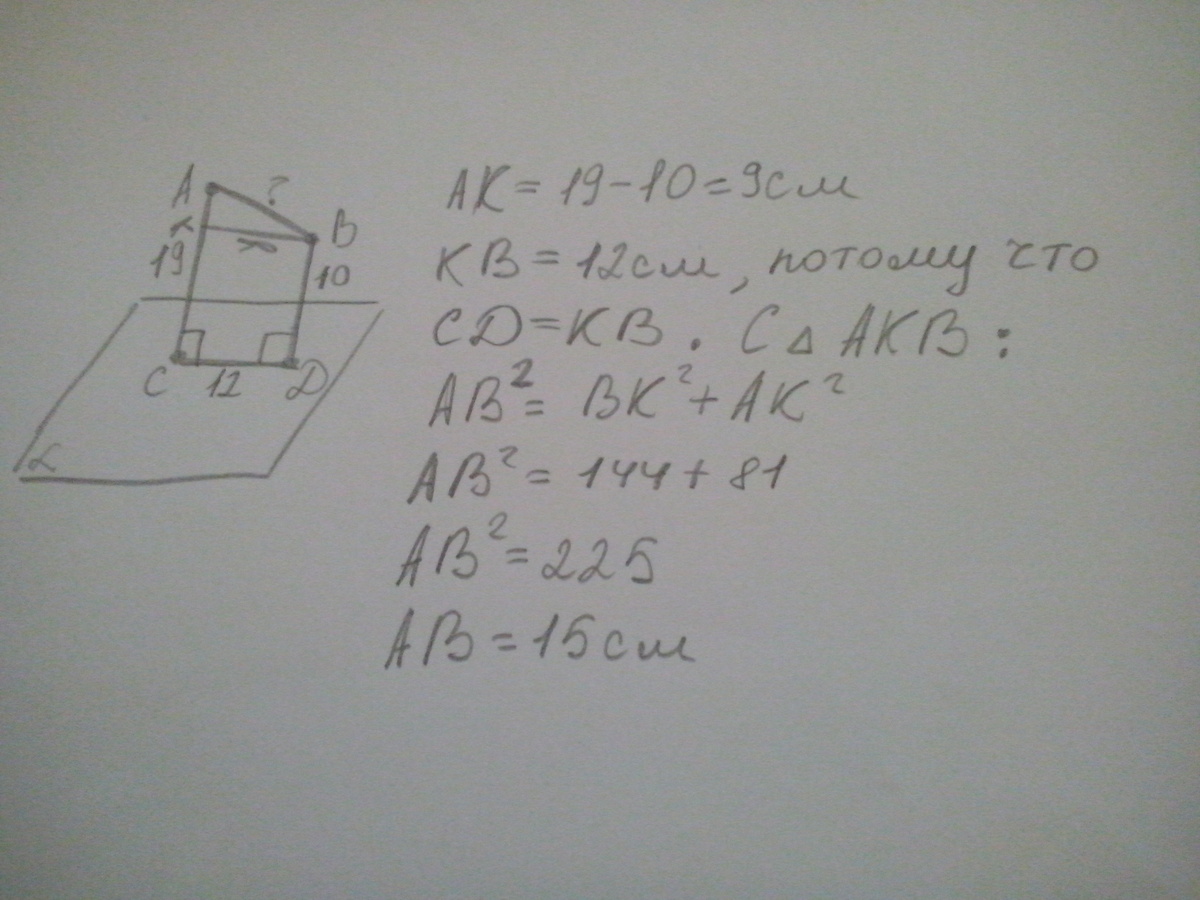 A
?
K
B
19
10
C
12
D
α
AK = 19-10=9см
KB = 12см, потому что
CD=KB. С △ AKB:
AB²= BK²+AK²
AB² = 144+81
AB²=225
AB=15см